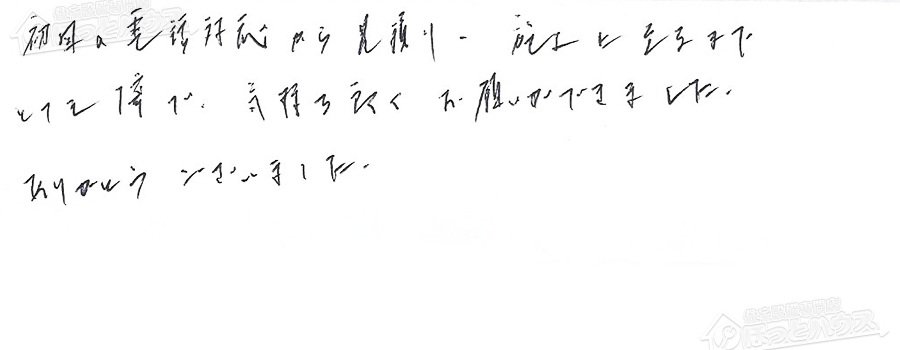 初回の電話対応から見積り、施工に至るまで
とても丁寧で、気持ち良くお願いができました。
ありがとうございました。
ほっとハウス